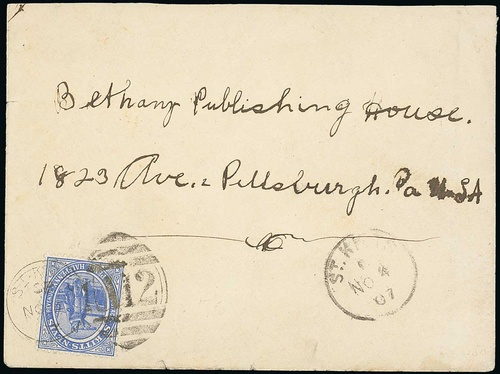 Bethany Publishing House.
1823 Ave. Pittsburgh. Pa U.S.A
ST. KITTS
NO 4
07
12
ST. KITTS-NEVIS